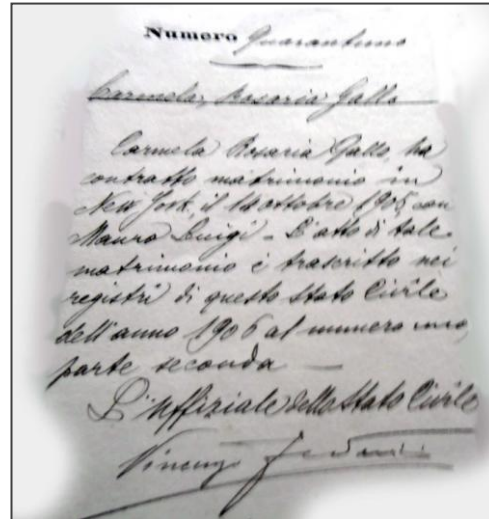 Numero Quarantuno
Carmela, Rosaria Gallo
Carmela Rosaria Gallo, ha
contratto matrimonio in
New York, il 14 ottobre 1905, con
Mauro Luigi - L'atto di tale
matrimonio è trascritto nei
registri di questo Stato Civile
dell'anno 1906 al numero uno,
parte seconda —
L'Uffiziale dello Stato Civile
Vincenzo